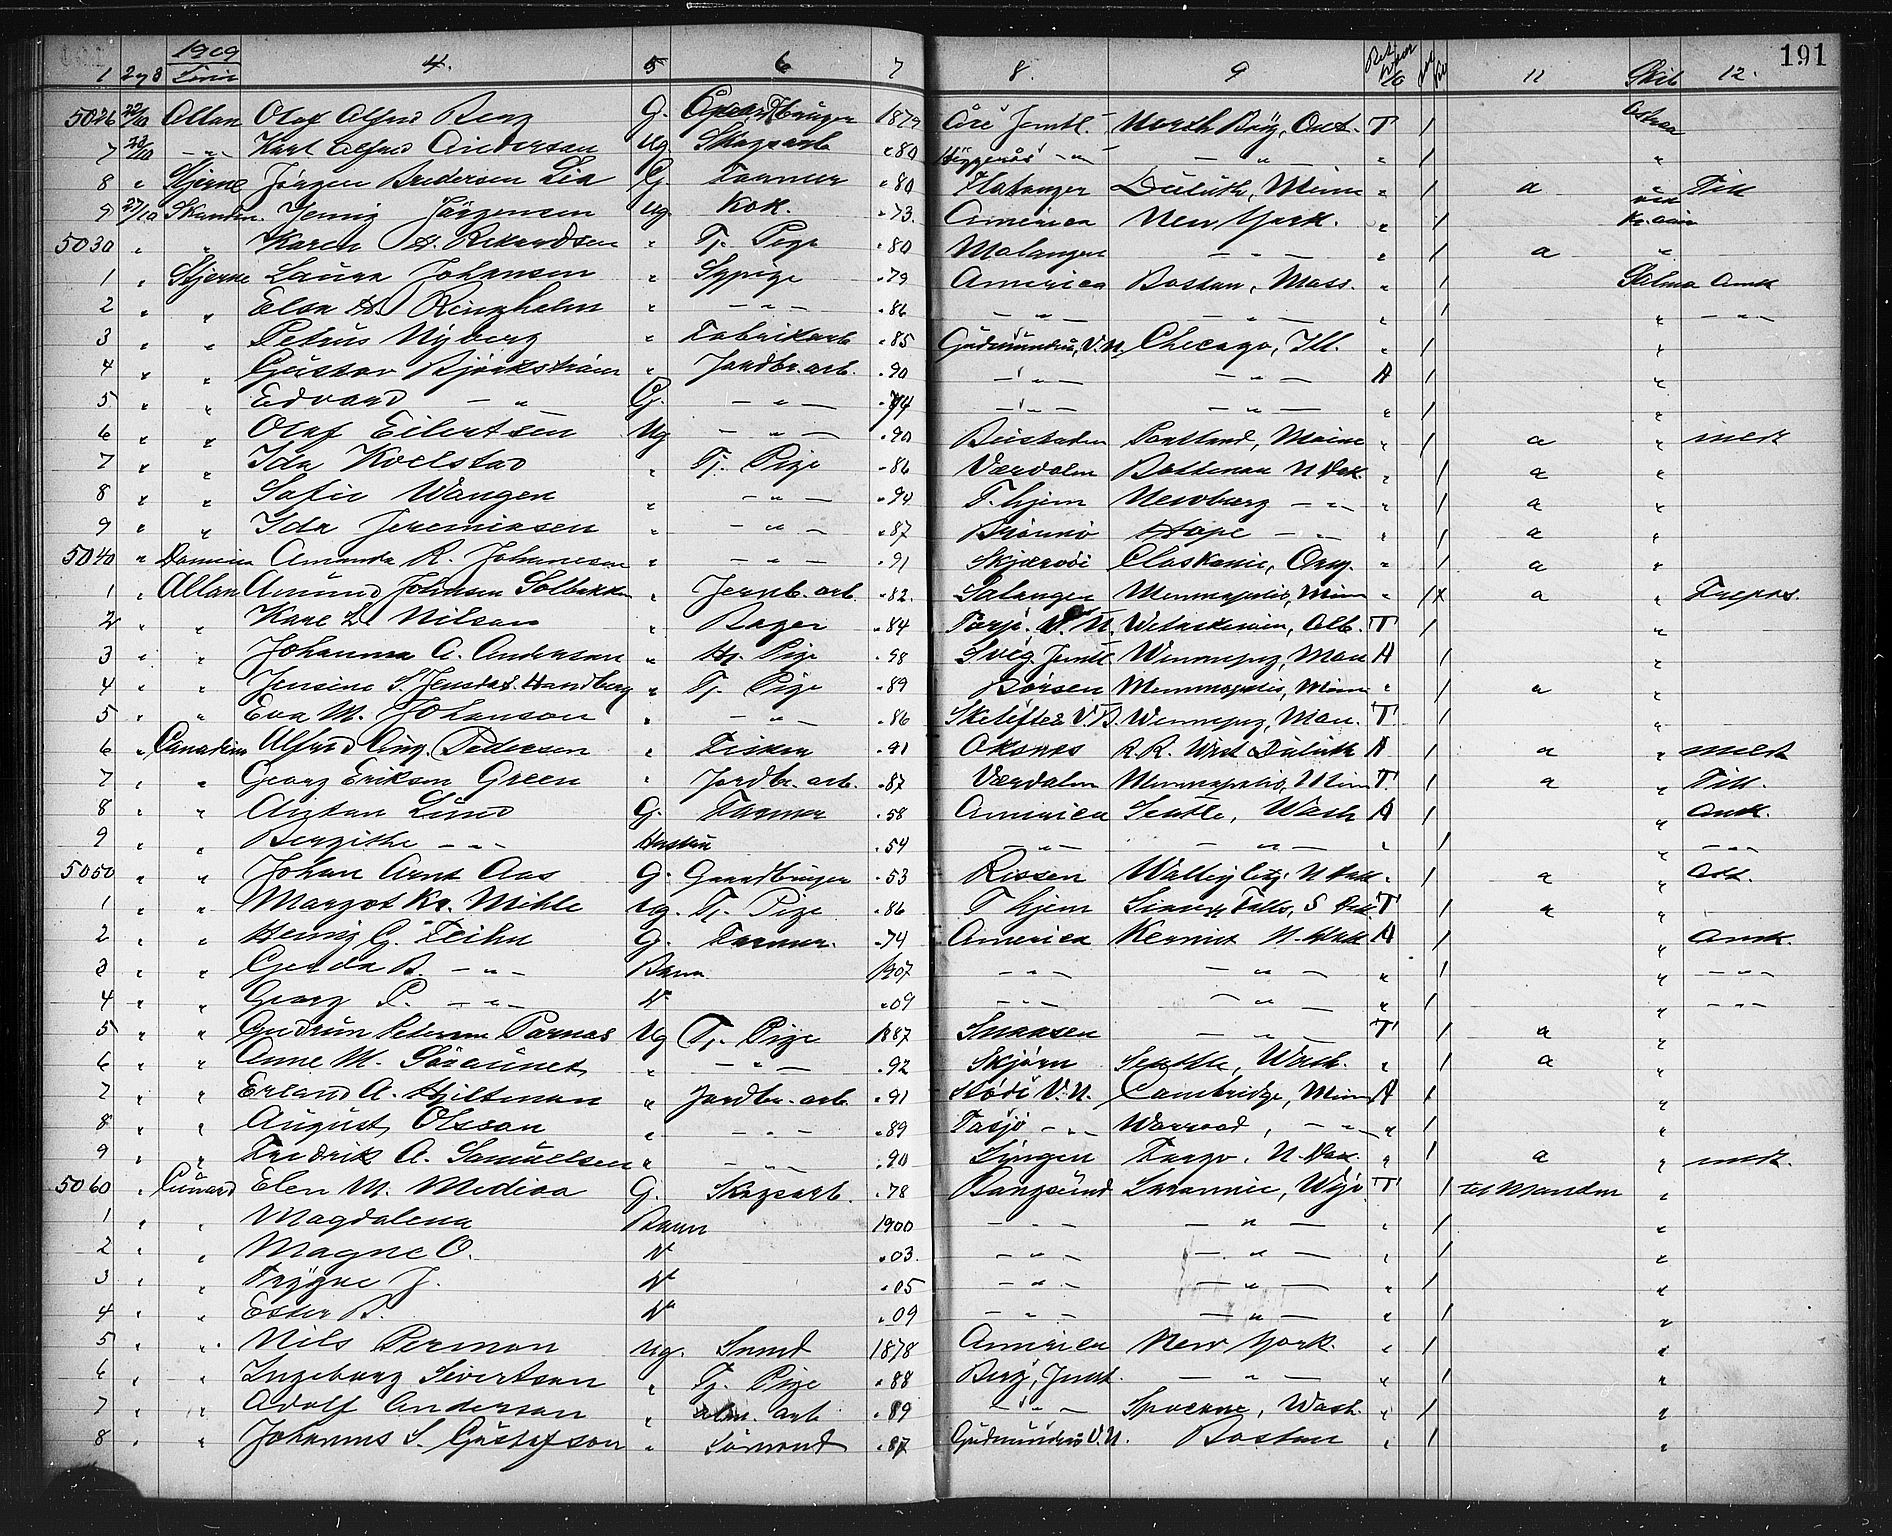 1909 191
1 2 og 3 Linie 4. 5 6 7 8. 9 11 Skib 12.
5026 22/10 Allan Olof Alfred Berg G. Gaardbruger 1879 Åre Jemtl. North Bay, Ont. T /
7 23/10 — " — Karl Alfred Anderson Ug Skogsarb " 80 Häggenås — " — — " — " / "
8 " Stjerne Jörgen Bredesen Lia G. Farmer " 80 Flatanger Duluth, Minn " / a " Till
9 27/10 Skandin. Jennig Jörgensen Ug Kok. " 73. America New York. " /
5030 " " Karen A. Rikardsen " Tj. Pige " 80 Malangen — " — " / a "
1 " Stjerne Laura Johansen " Sypige " 79 America Boston, Mass. " / Selma Amk
2 " " Elsa H. Ringholm " — " — " 86 — " — — " — " / " — " —
3 " " Petrus Nyberg " Fabrikarb " 85 Gudmundrå, V.N. Chicago, Ill. " / "
4 " " Gustav Björkström " Jordbr. arb. " 90 — " — — " — A / "
5 " " Edvard — " — G. — " — " 74 — " — — " — " / "
6 " " Olaf Eilertsen Ug — " — " 90 Beistaden Portland, Maine " / a " med
7 " " Ida Kvelstad " Tj. Pige " 86 Værdalen Bottineau N Dak. " / a "
8 " " Sofie Wangen " — " — " 90 T.hjem Newburg — " — " / a "
9 " " Ida Jeremiasen " — " — " 87 Brönnö Hope — " — " / a "
5040 " Dominion Amanda R. Johannesen " — " — " 91 Skjærvö Claskanie, Oreg. " / a "
1 " Allan Amund Johnsen Solbakken " Jernb. arb " 82. Salangen Minneapolis, Minn " / x a " Frepas.
2 " " Kare L. Nilson " Bager " 84 Tåsjö. V. N. Wetaskewin, Alb. T /
3 " " Johanna A. Anderson " Hj. Pige " 88 Sveg. Jemtl Winnepeg, Man A / "
4 " " Jensine S. Jensdat. Handberg " Tj. Pige " 89 Börsen Minneapolis, Minn " / a "
5 " " Eva M. Johanson " — " — " 86 Skelefteå V.B. Winnepeg, Man. T / "
6 " Canadian Alfred Aug. Pedersen " Fisker " 91 Oksnes R.R. West Duluth A / a " med
7 " " Georg Erikson Green " Jordbr. arb. " 87 Værdalen Minneapolis, Minn T / a " Till.
8 " " Austan Lund G. Farmer " 58 America Seatle, Wash A / " Amk.
9 " " Bergithe — " — Hustru " 54 — " — — " — " / " — " —
5050 " " Johan Arnt Aas G. Gaardbruger " 53 Rissen Walley City N Dak " / a "
1 " " Margot Kr. Mihle Ug. Tj. Pige " 86 T hjem Sioux Falls, S Dak T / a "
2 " " Hennig G. Feihn G. Farmer. " 74 America Kermit N. Dak A / " Amk.
3 " " Gerda B. — " — Barn 1907 — " — — " — " / " — " —
4 " " Georg P. — " — N " 09 — " — — " — " / " — " —
5 " " Gudrun Peternie Parnas Ug Tj. Pige 1887 Snaasen — " — T / a "
6 " " Anne M. Söraunet " — " — " 92 Skjörn Seattle, Wash. " / a "
7 " " Erland A. Hjiltman " Jordbr. arb. " 91 Stöde V. N. Cambridge, Minn A / "
8 " " August Olsson " — " — " 89 Tåsjö — " — Warroad, — " — " / "
9 " " Fredrik A. Samuelsen " — " — " 90 Lyngen Fargo. N. Dak. " / a " med.
5060 " Cunard Elen M. Mediaa G. Skogsarb. " 78 Bangsund Larannie, Wyo T / til Manden "
1 " " Magdalena Barn 1900 — " — — " — " / "
2 " " Magne O. N " 03. — " — — " — " / "
3 " " Trygve J. N " 05 — " — — " — " / "
4 " " Ester B. N " 09 — " — — " — " / "
5 " " Nils Perman Ug. Smed 1878 America New York. " / "
6 " " Ingeborg Sivertson " Tj. Pige " 88 Berg, Jemt. — " — " / "
7 " " Adolf Anderson " alm. arb " 89 — " — Spocane, Wash. " / "
8 " " Johannes S. Gustafson " Sömand " 87 Gudmundrå V.N. Boston " / "